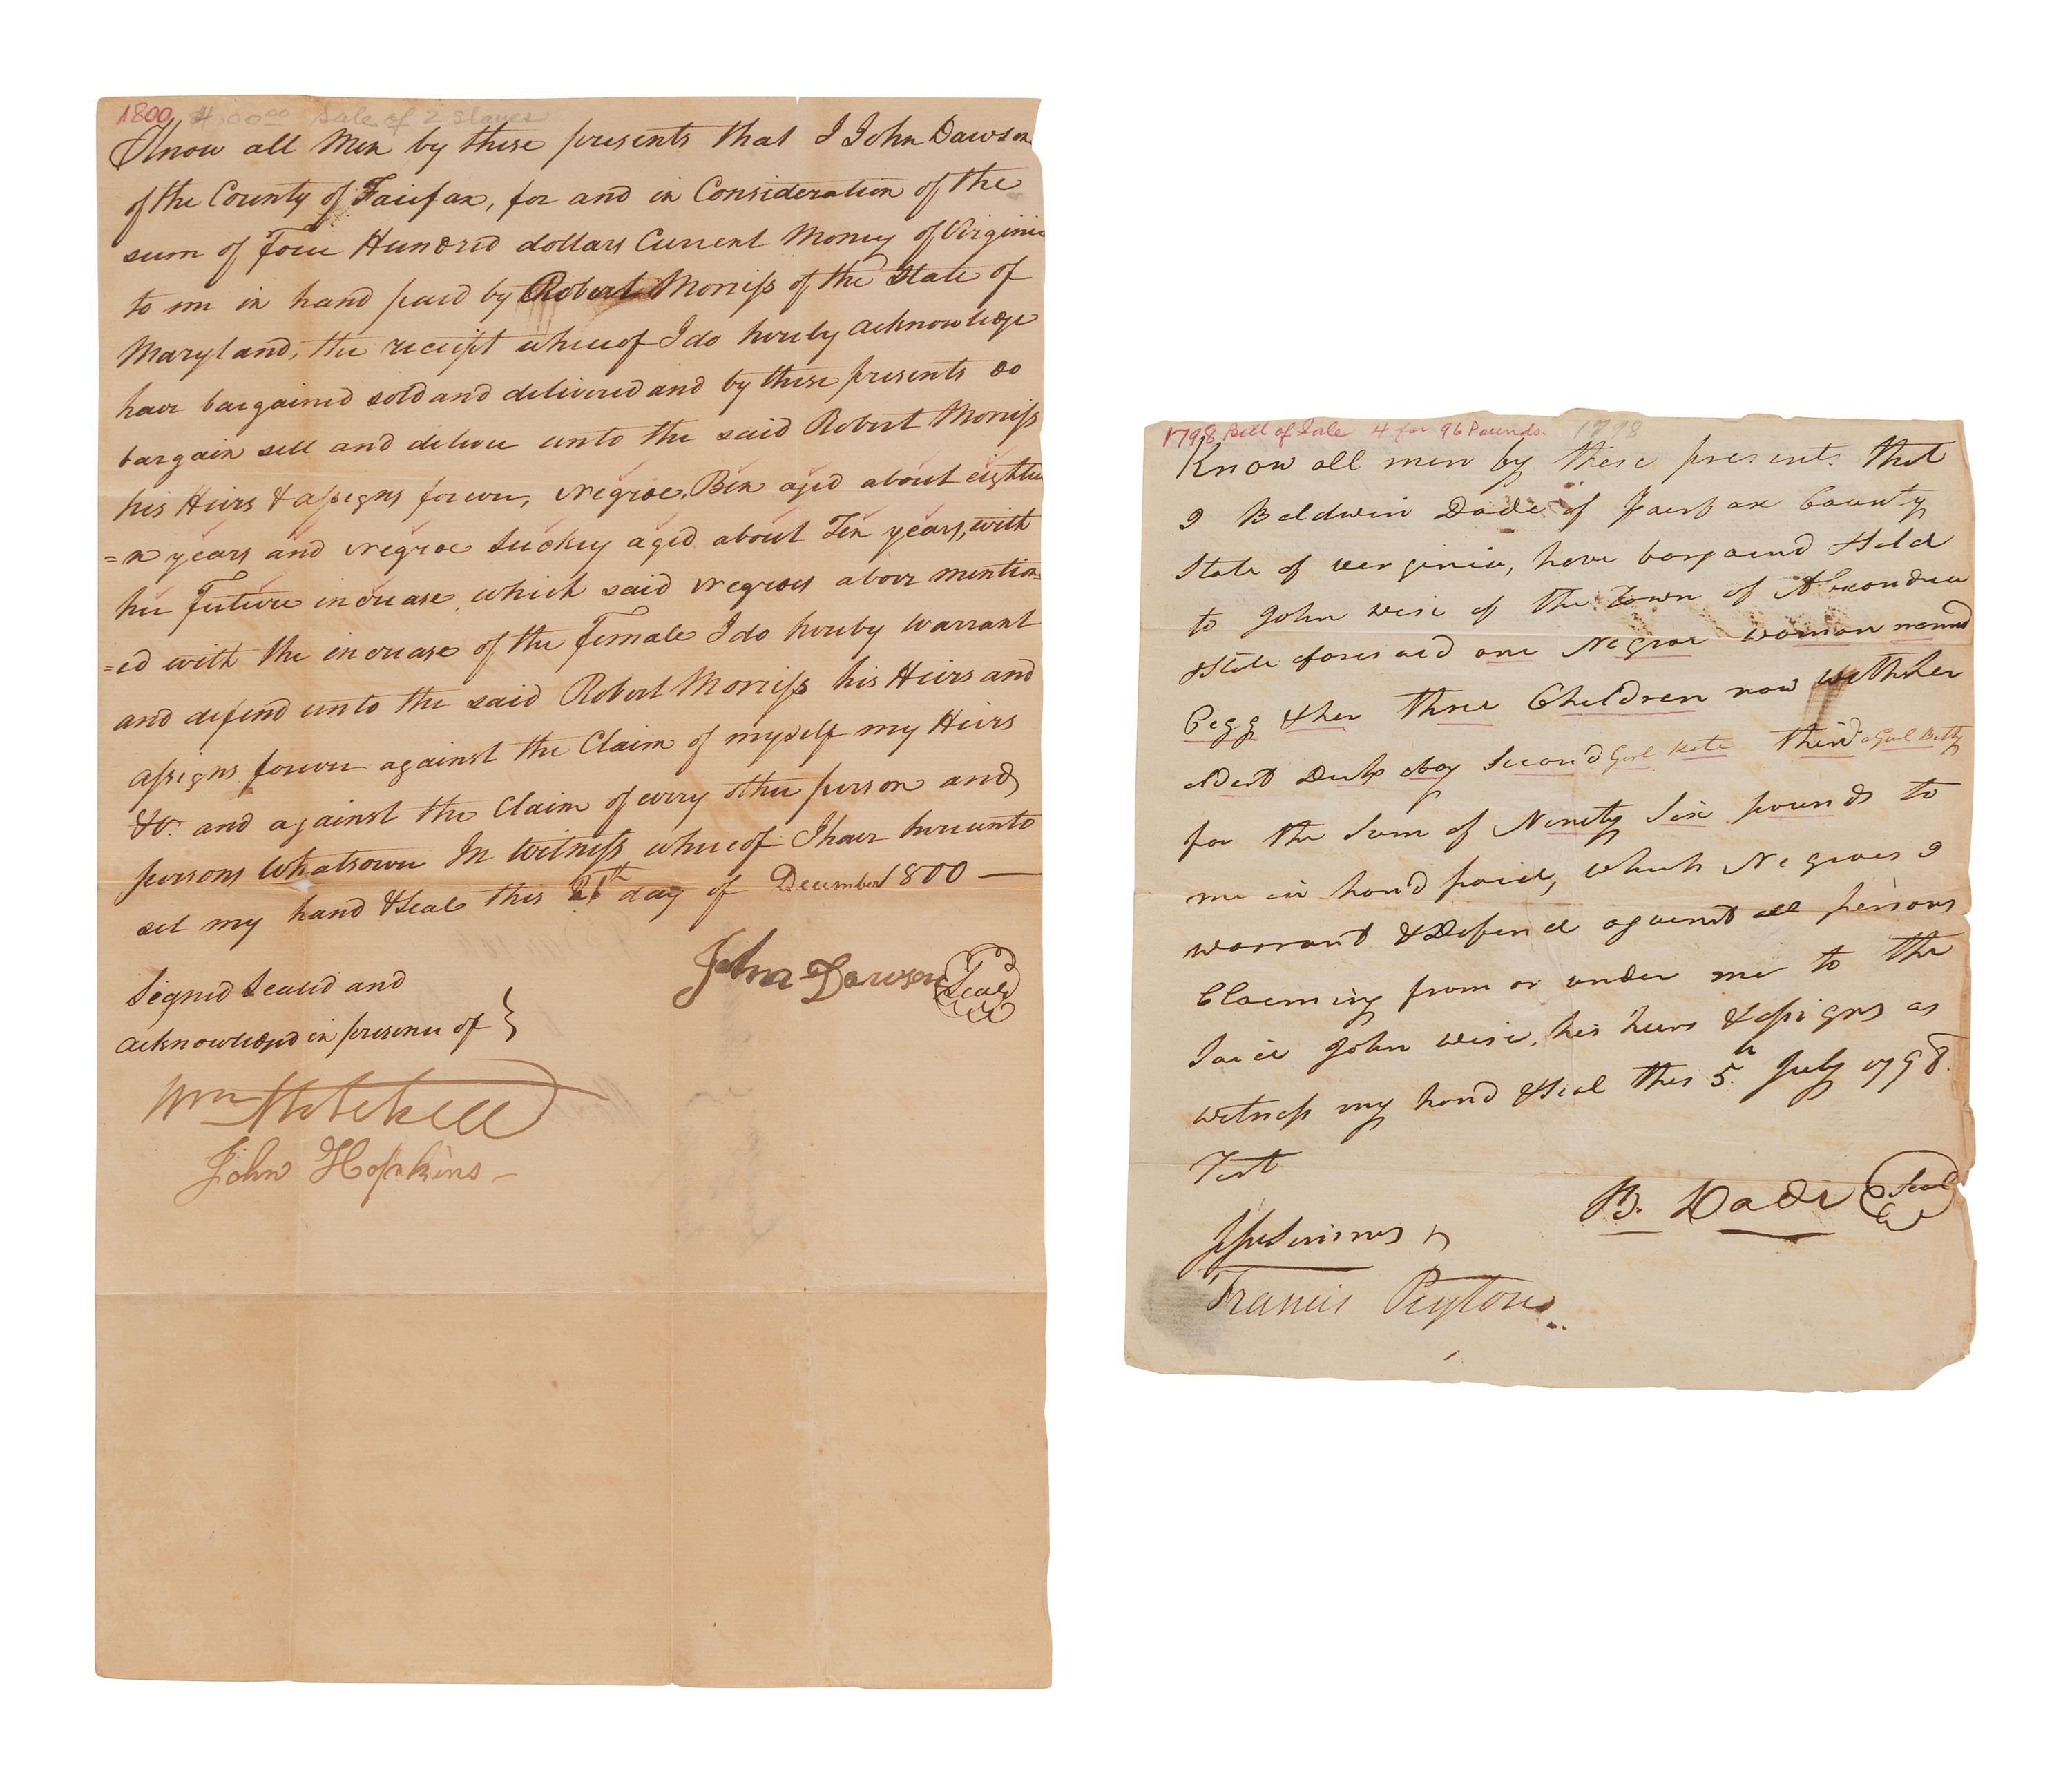 1800 Sale of 2 Slaves
Know all Men by these presents that I John Dawson
of the County of Fairfax, for and in Consideration of the
sum of Four Hundred dollars Current Money of Virginia
to me in hand paid by Robert Morriss of the State of
Maryland, the receipt whereof I do hereby acknowledge
have bargained sold and delivered and by these presents do
bargain sell and deliver unto the said Robert Morriss
his Heirs & assigns forever, Negroe, Ben aged about eightee
=n years and Negroe Suckey aged about Ten years, with
her Future increase, which said Negroes above mention=
=ed with the increase of the Female I do hereby warrant
and defend unto the said Robert Morriss his Heirs and
assigns forever against the Claim of myself my Heirs
&c. and against the Claim of every other person and
persons Whatsoever In Witness whereof I have hereunto
set my hand & Seal this 21th day of December 1800 —
John Dawson Seal
Signed Sealed and
acknowledged in presence of }
Wm Mitchell
John Hopkins -
1798 Bill of Sale 4 for 96 Pounds. 1798
Know all men by these presents that
I Baldwin Dade of Fairfax County
State of Verginia, have bargaind & Sold
to John Wise of the Town of Alexandria
& State aforesaid one Negroe woman named
Pegg & her three Children now with her
eldest Dick a boy Second Girl Kate third a Girl Betty
for the Sum of Ninety Six pounds to
me in hand paid, which Negroes I
warrant & Defend against all persons
Claeming from or under me to the
Said John Wise, his heirs & assigns as
witness my hand & Seal this 5th July 1798.
Test
B. Dade Seal
Jesse Simms
Francis Peyton